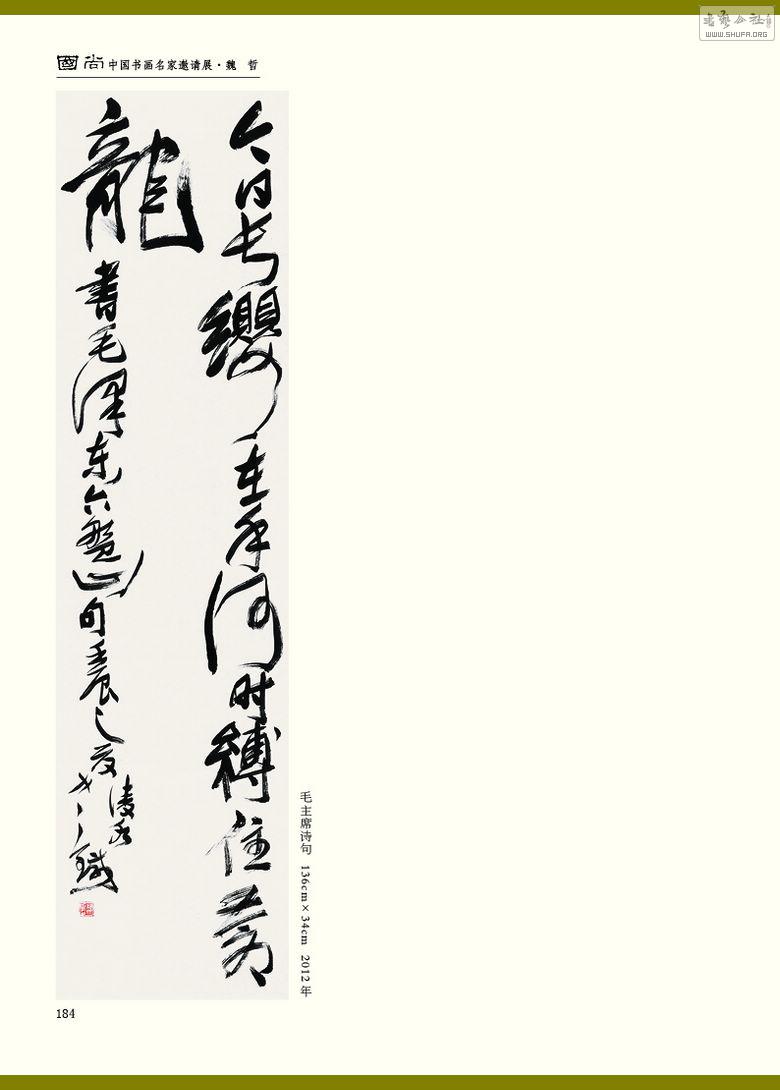 書藝公社
WWW.SHUFA.ORG
國尚 中国书画名家邀请展·魏　哲
今日长纓在手何时縛住苍
龍 書毛泽东六盘山句壬辰之夏
毛主席诗句　136cm×34cm　2012年
184